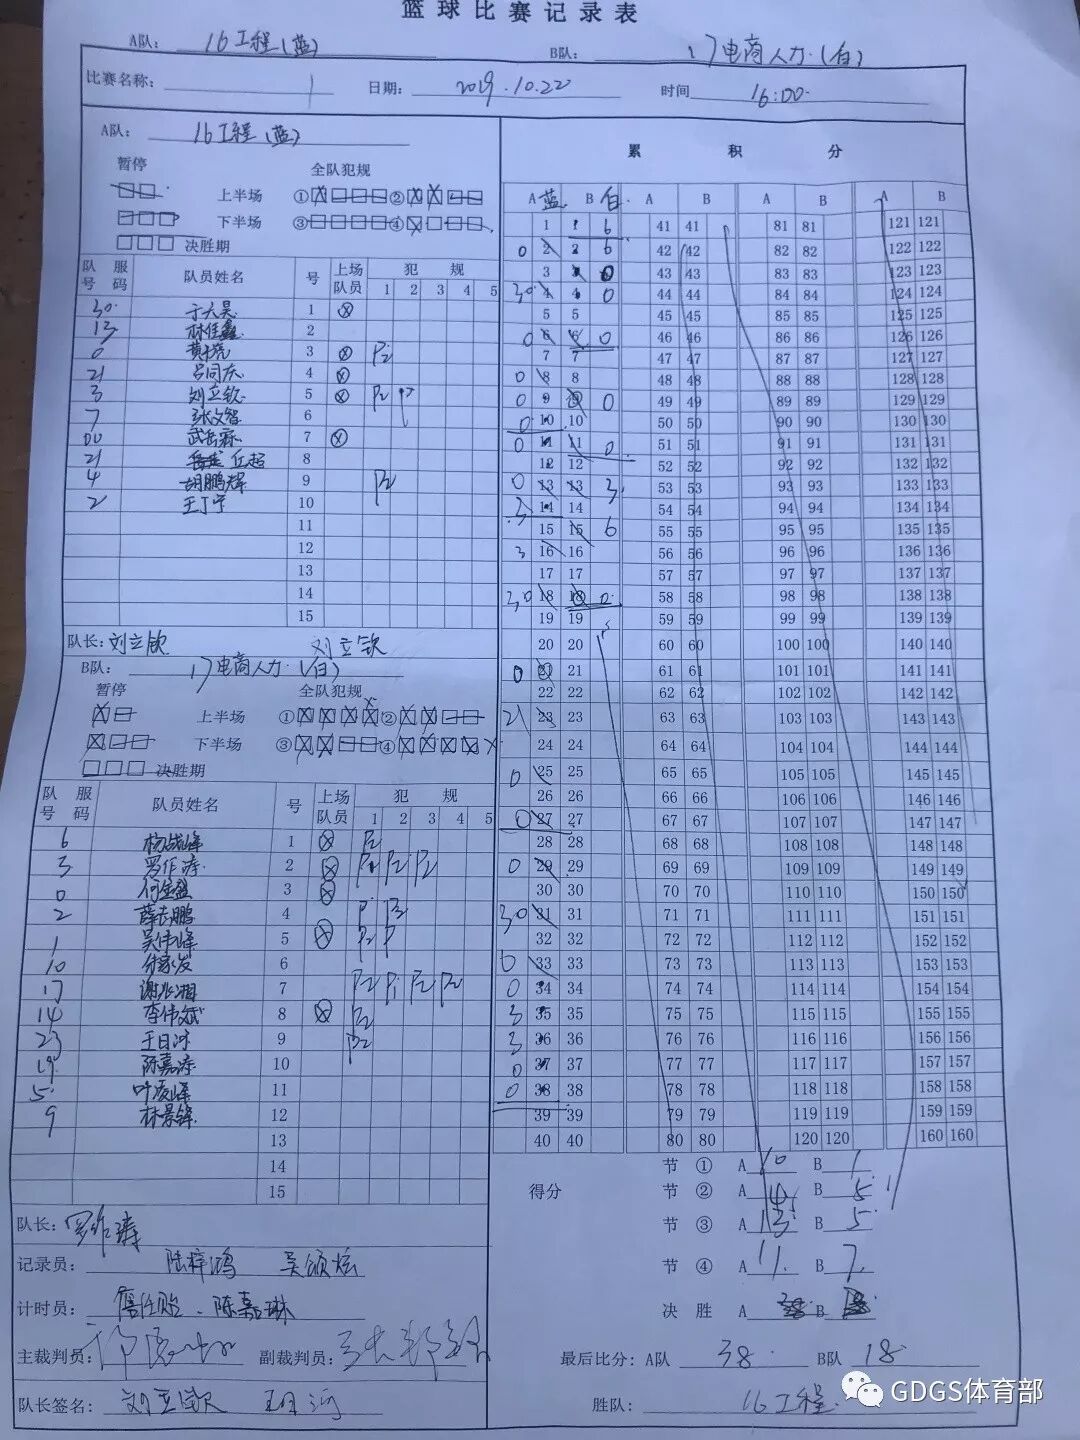 篮球比赛记录表
A队: 16工程(蓝) B队: 17电商人力(白)
比赛名称: 日期: 2019.10.22 时间 16:00
A队: 16工程(蓝)
暂停 全队犯规
上半场 ① ②
下半场 ③ ④
决胜期
队号 服码 队员姓名 号 上场队员 犯规 1 2 3 4 5
30 1
13 2
0 3 P2
21 吕同庆 4
3 刘立钦 5 P2
7 张文智 6
00 7
21 丘超 8
4 胡鹏辉 9 P2
2 王丁宁 10
11
12
13
14
15
队长: 刘立钦 刘立钦
B队: 17电商人力(白)
暂停 全队犯规
上半场 ① ②
下半场 ③ ④
决胜期
队号 服码 队员姓名 号 上场队员 犯规 1 2 3 4 5
6 1 P2
3 2 P2 P2 P2
0 3
2 薛志鹏 4
1 吴伟峰 5 P2 P
10 6
17 7 P2 P1 P2 P2
14 李伟斌 8 P2
23 王日河 9 P2
19 陈嘉涛 10
5 叶凌峰 11
9 林景锋 12
13
14
15
队长:
记录员: 陆梓鸿 吴颂炫
计时员: 陈嘉琳
主裁判员: 副裁判员:
队长签名: 刘立钦
累积分
A 蓝 B 白 A B A B A B
1 1 6 41 41 81 81 121 121
0 2 2 6 42 42 82 82 122 122
3 3 0 43 43 83 83 123 123
30 4 4 0 44 44 84 84 124 124
5 5 45 45 85 85 125 125
0 6 6 0 46 46 86 86 126 126
7 7 47 47 87 87 127 127
0 8 8 48 48 88 88 128 128
0 9 9 0 49 49 89 89 129 129
0 10 10 50 50 90 90 130 130
0 11 11 0 51 51 91 91 131 131
12 12 52 52 92 92 132 132
0 13 13 3 53 53 93 93 133 133
3 14 14 54 54 94 94 134 134
15 15 6 55 55 95 95 135 135
3 16 16 56 56 96 96 136 136
17 17 57 57 97 97 137 137
30 18 18 0 58 58 98 98 138 138
19 19 59 59 99 99 139 139
20 20 60 60 100 100 140 140
0 21 21 61 61 101 101 141 141
22 22 62 62 102 102 142 142
21 23 23 63 63 103 103 143 143
24 24 64 64 104 104 144 144
0 25 25 65 65 105 105 145 145
26 26 66 66 106 106 146 146
0 27 27 67 67 107 107 147 147
28 28 68 68 108 108 148 148
0 29 29 69 69 109 109 149 149
30 30 70 70 110 110 150 150
30 31 31 71 71 111 111 151 151
32 32 72 72 112 112 152 152
0 33 33 73 73 113 113 153 153
0 34 34 74 74 114 114 154 154
3 35 35 75 75 115 115 155 155
3 36 36 76 76 116 116 156 156
0 37 37 77 77 117 117 157 157
0 38 38 78 78 118 118 158 158
39 39 79 79 119 119 159 159
40 40 80 80 120 120 160 160
得分
节 ① A 10 B 1
节 ② A 4 B 5
节 ③ A 13 B 5
节 ④ A 11 B 7
决胜 A B
最后比分: A队 38 B队 18
胜队: 16工程
GDGS体育部